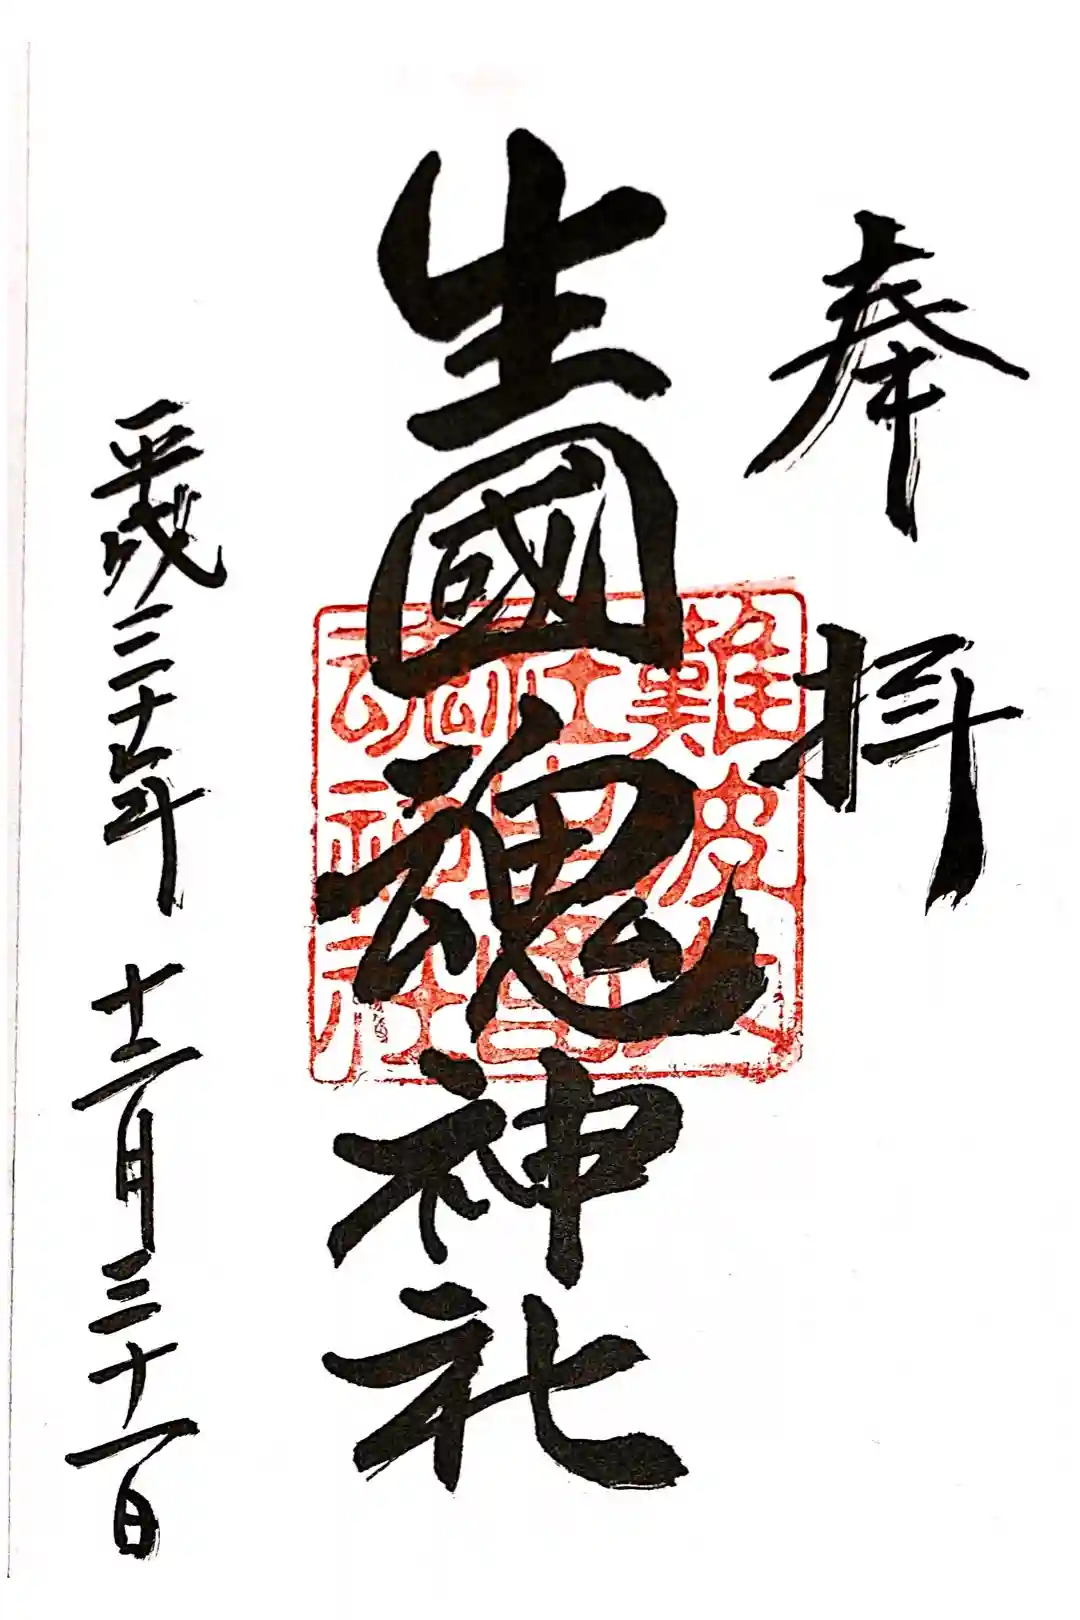 奉拝
生國魂神社
難波大
社生國
魂神社
平成二十七年十二月三十一日